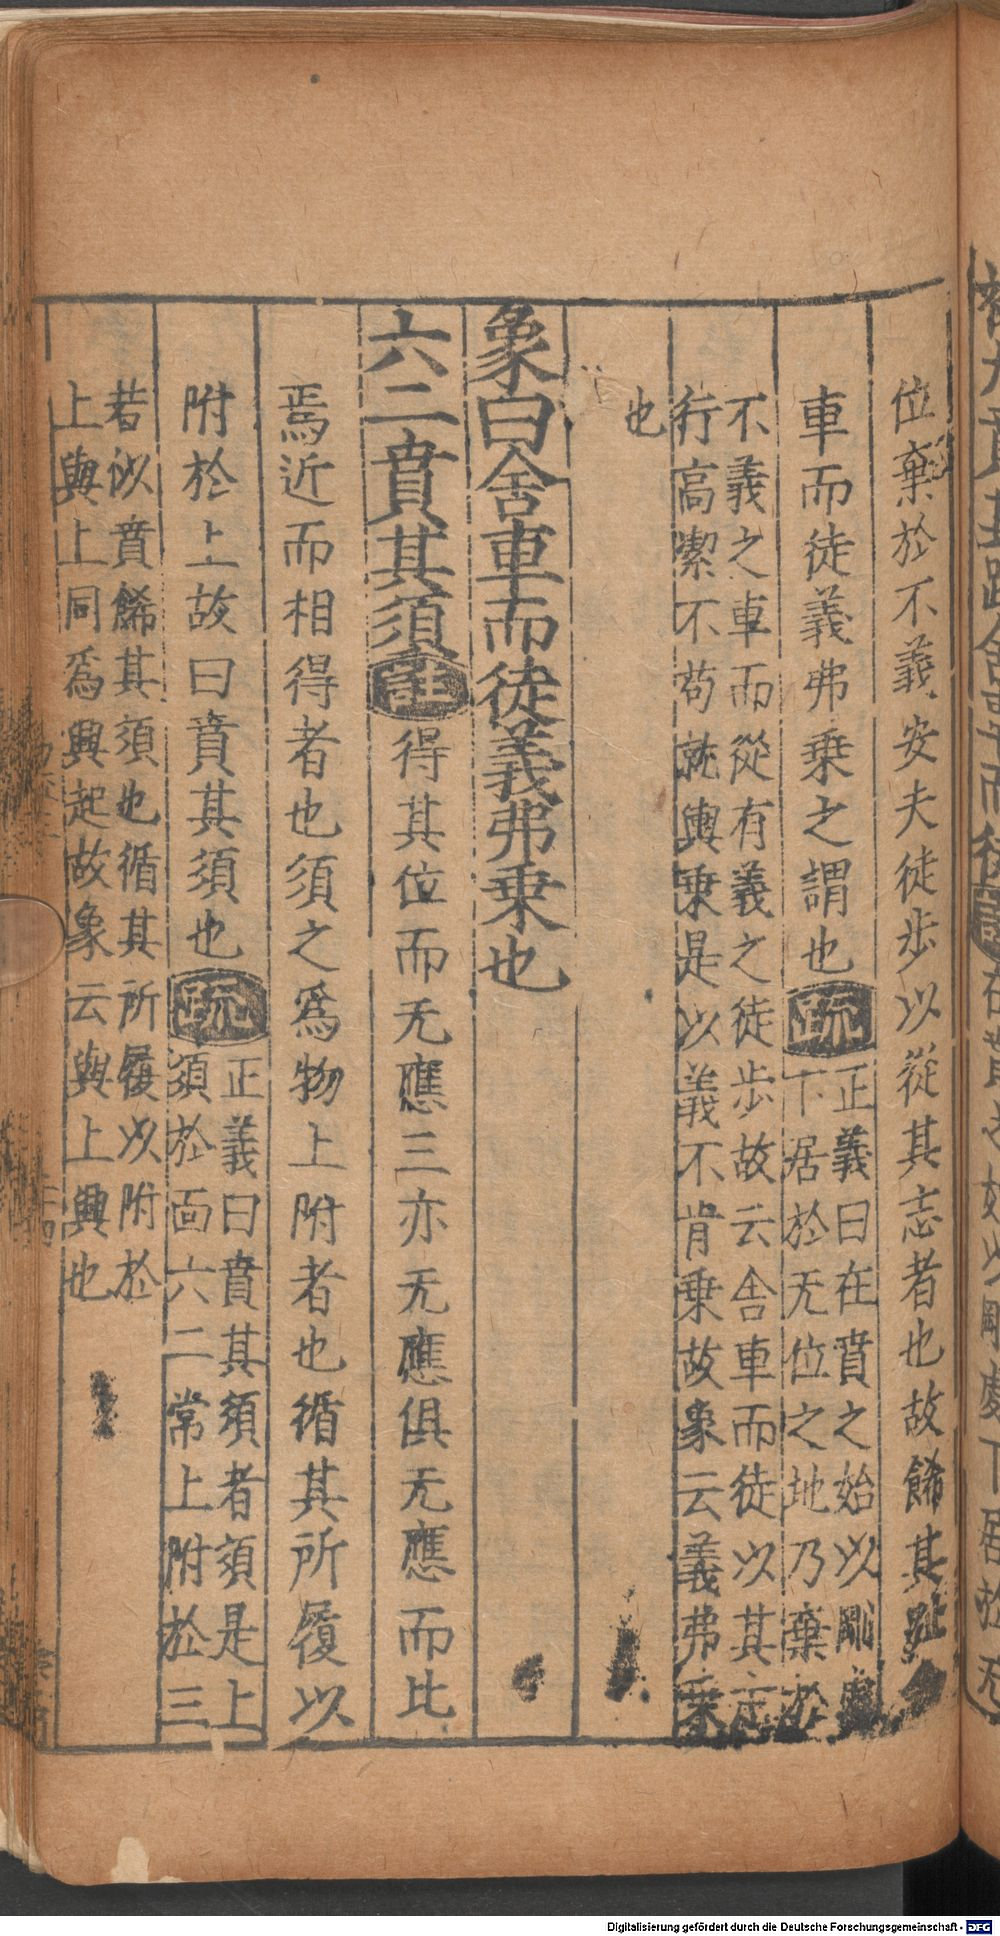 位棄於不義安夫徒步以從其志者也故餙其趾
車而徒義弗乗之謂也疏正義曰在賁之始以剛處
下居於无位之地乃棄於
不義之車而從有義之徒步故云舎車而徒以其志
行高㓗不苟就輿乗是以義不肯乗故象云義弗乗
也
象曰舎車而徒義弗乗也
六二賁其須註得其位而无應三亦无應俱无應而比
焉近而相得者也須之爲物上附者也循其所履以
附於上故曰賁其須也疏正義曰賁其須者須是上
須於面六二常上附於三
若似賁餙其須也循其所履以附於
上與上同爲興起故象云與上興也
Digitalisierung gefördert durch die Deutsche Forschungsgemeinschaft - DFG